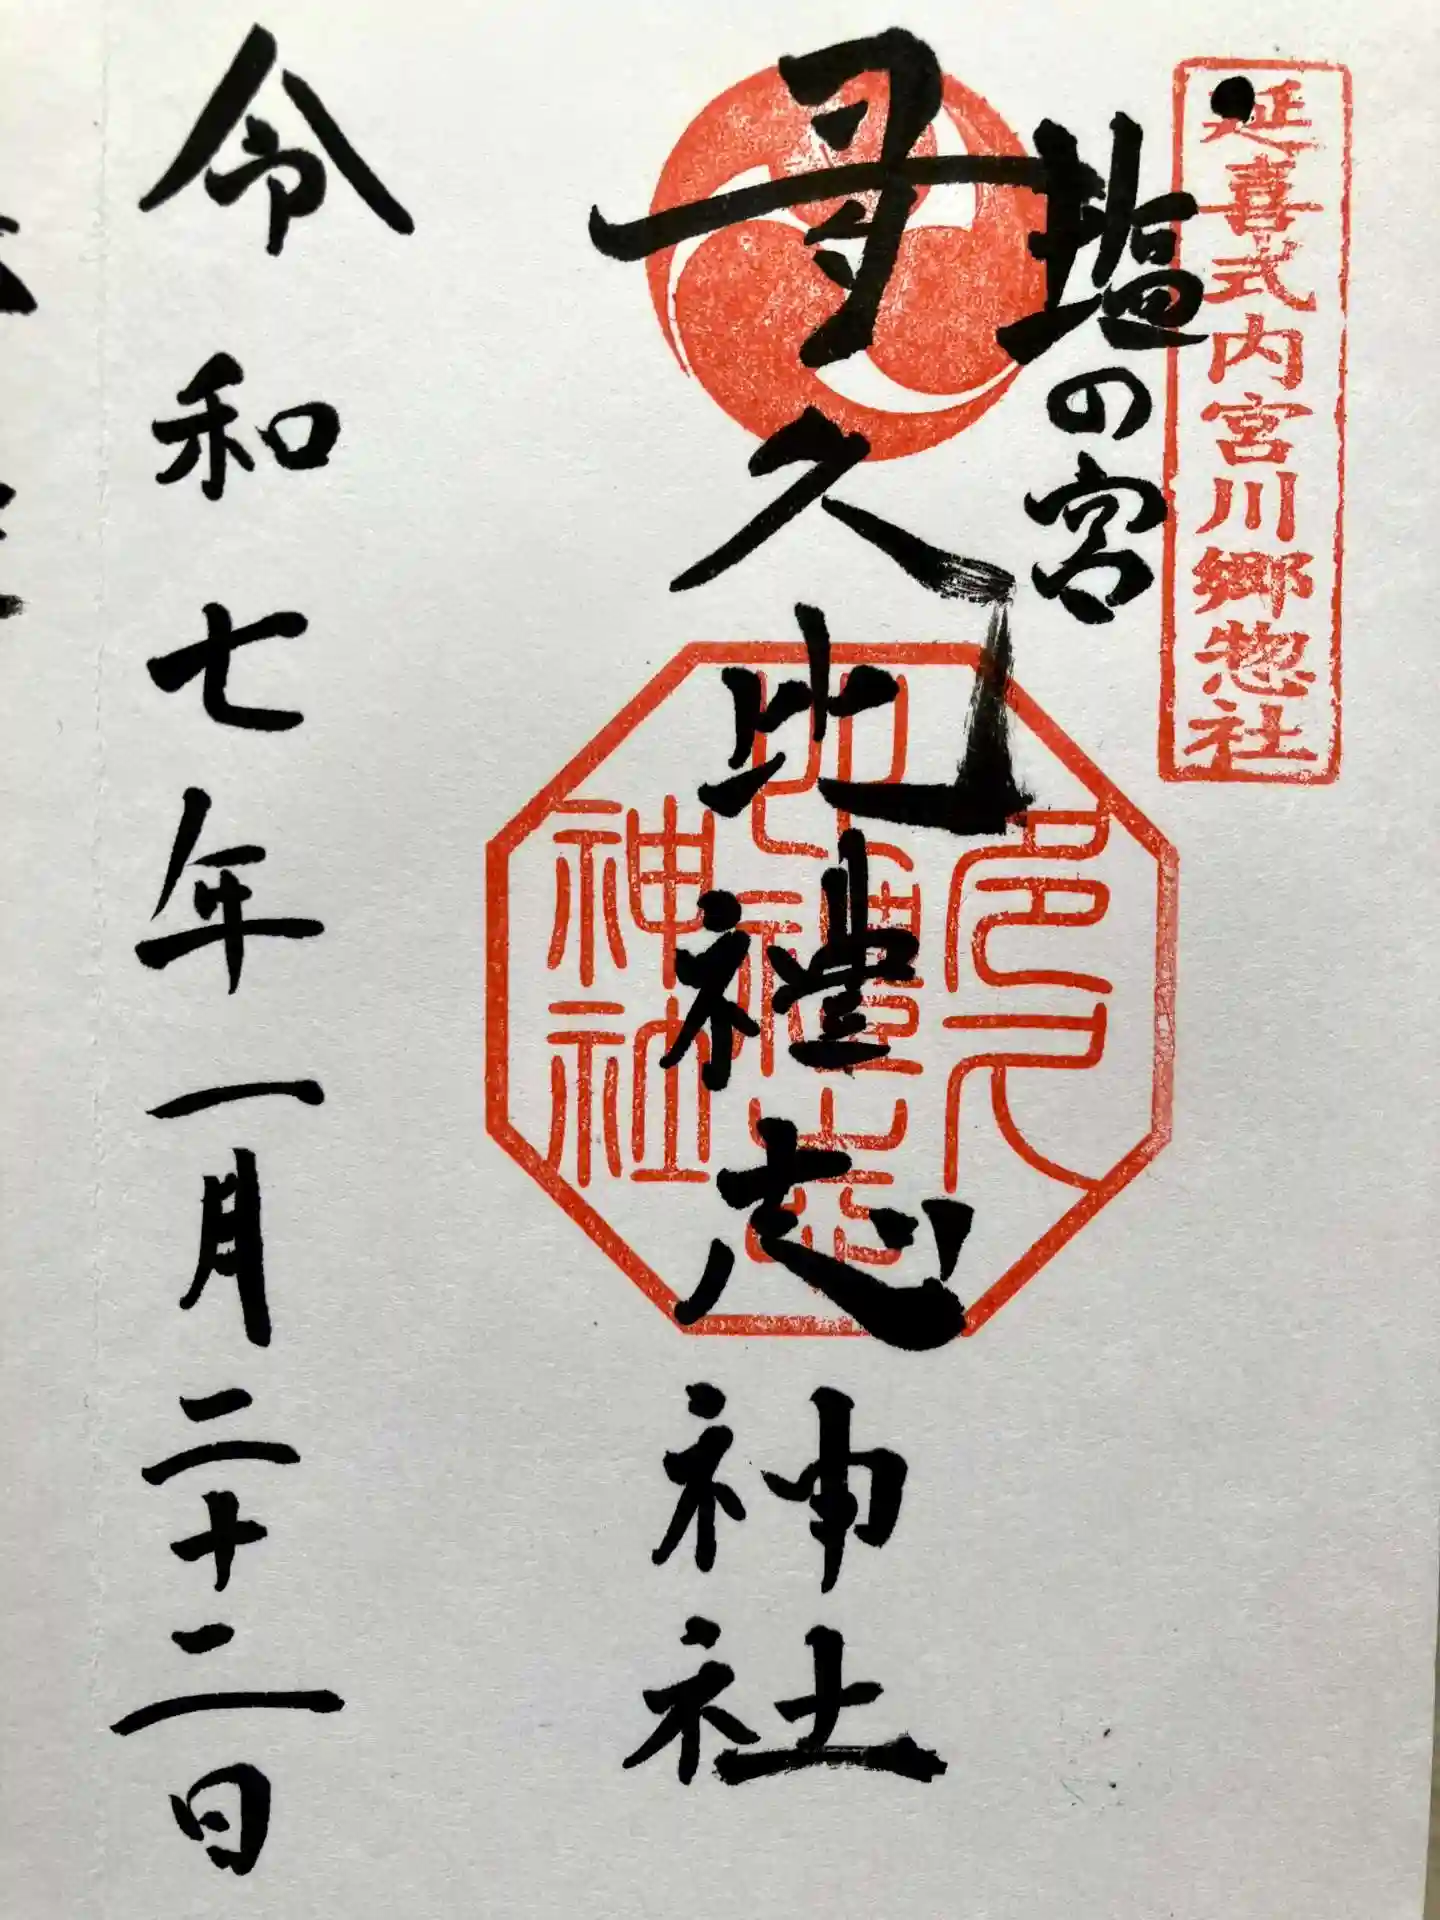 延喜式内宮川郷惣社
塩の宮
多久比禮志神社
多久
比禮志
神社
令和七年一月二十二日